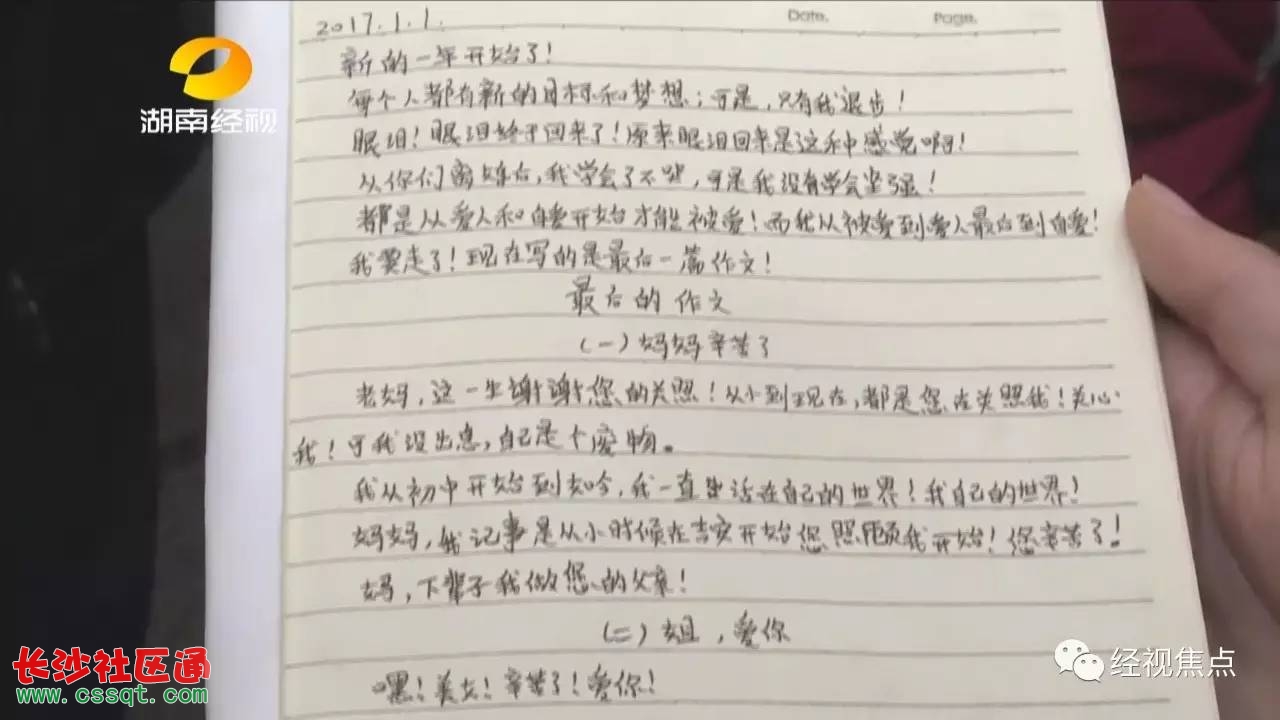 2017.1.1.
Date.
Page.
新的一年开始了!
每个人都有新的目标和梦想;可是,只有我退步!
眼泪!眼泪终于回来了!原来眼泪回来是这种感觉啊!
从你们离婚后,我学会了不哭,可是我没有学会坚强!
都是从爱人和自爱开始才能被爱!而我从被爱到爱人最后到自爱!
我要走了!现在写的是最后一篇作文!
最后的作文
(一)妈妈辛苦了
老妈,这一生谢谢您的关照!从小到现在,都是您在关照我!关心
我!可我没出息,自己是个废物。
我从初中开始到如今,我一直生活在自己的世界!我自己的世界!
妈妈,我记事是从小时候在吉安开始您照顾我开始!您辛苦了!
妈,下辈子我做您的父亲!
(二)姐,爱你
嘿!美女!辛苦了!爱你!
湖南经视
长沙社区通
www.cssqt.com
经视焦点